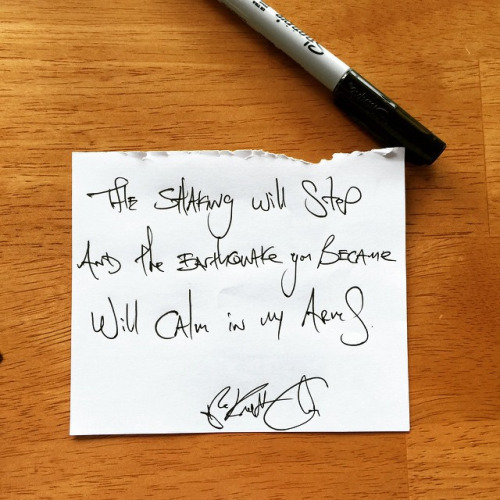 Sharpie
The SHAKING will Stop
AND the EARTHQUAKE you BECAME
Will CAlm in my ARMS.